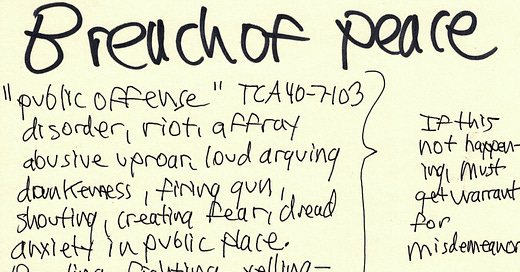 Breach of peace
"public offense" TCA 40-7-103
disorder, riot, affray
abusive uproar, loud arguing
drunkenness, firing gun,
shouting, creating fear, dread
anxiety in public place.
yelling-
If this
not happen-
ing, must
get warrant
for
misdemeanor